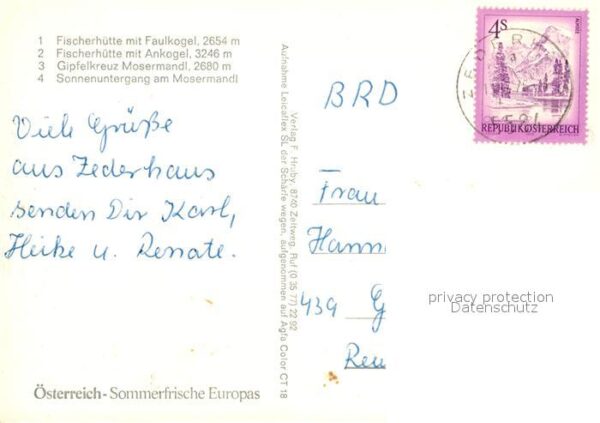 1 Fischerhütte mit Faulkogel, 2654 m
2 Fischerhütte mit Ankogel, 3246 m
3 Gipfelkreuz Mosermandl, 2680 m
4 Sonnenuntergang am Mosermandl
Viele Grüße
aus Zederhaus
senden Dir Karl,
Heike u. Renate.
Österreich - Sommerfrische Europas
Verlag F. Hruby, 8740 Zeltweg, Ruf (0 35 77) 22 92
Aufnahme Leicaflex SL der Schärfe wegen, aufgenommen auf Agfa Color CT 18
4S
ALMSEE
REPUBLIK ÖSTERREICH
BRD
Frau
Hann
439 G
Reu
privacy protection
Datenschutz